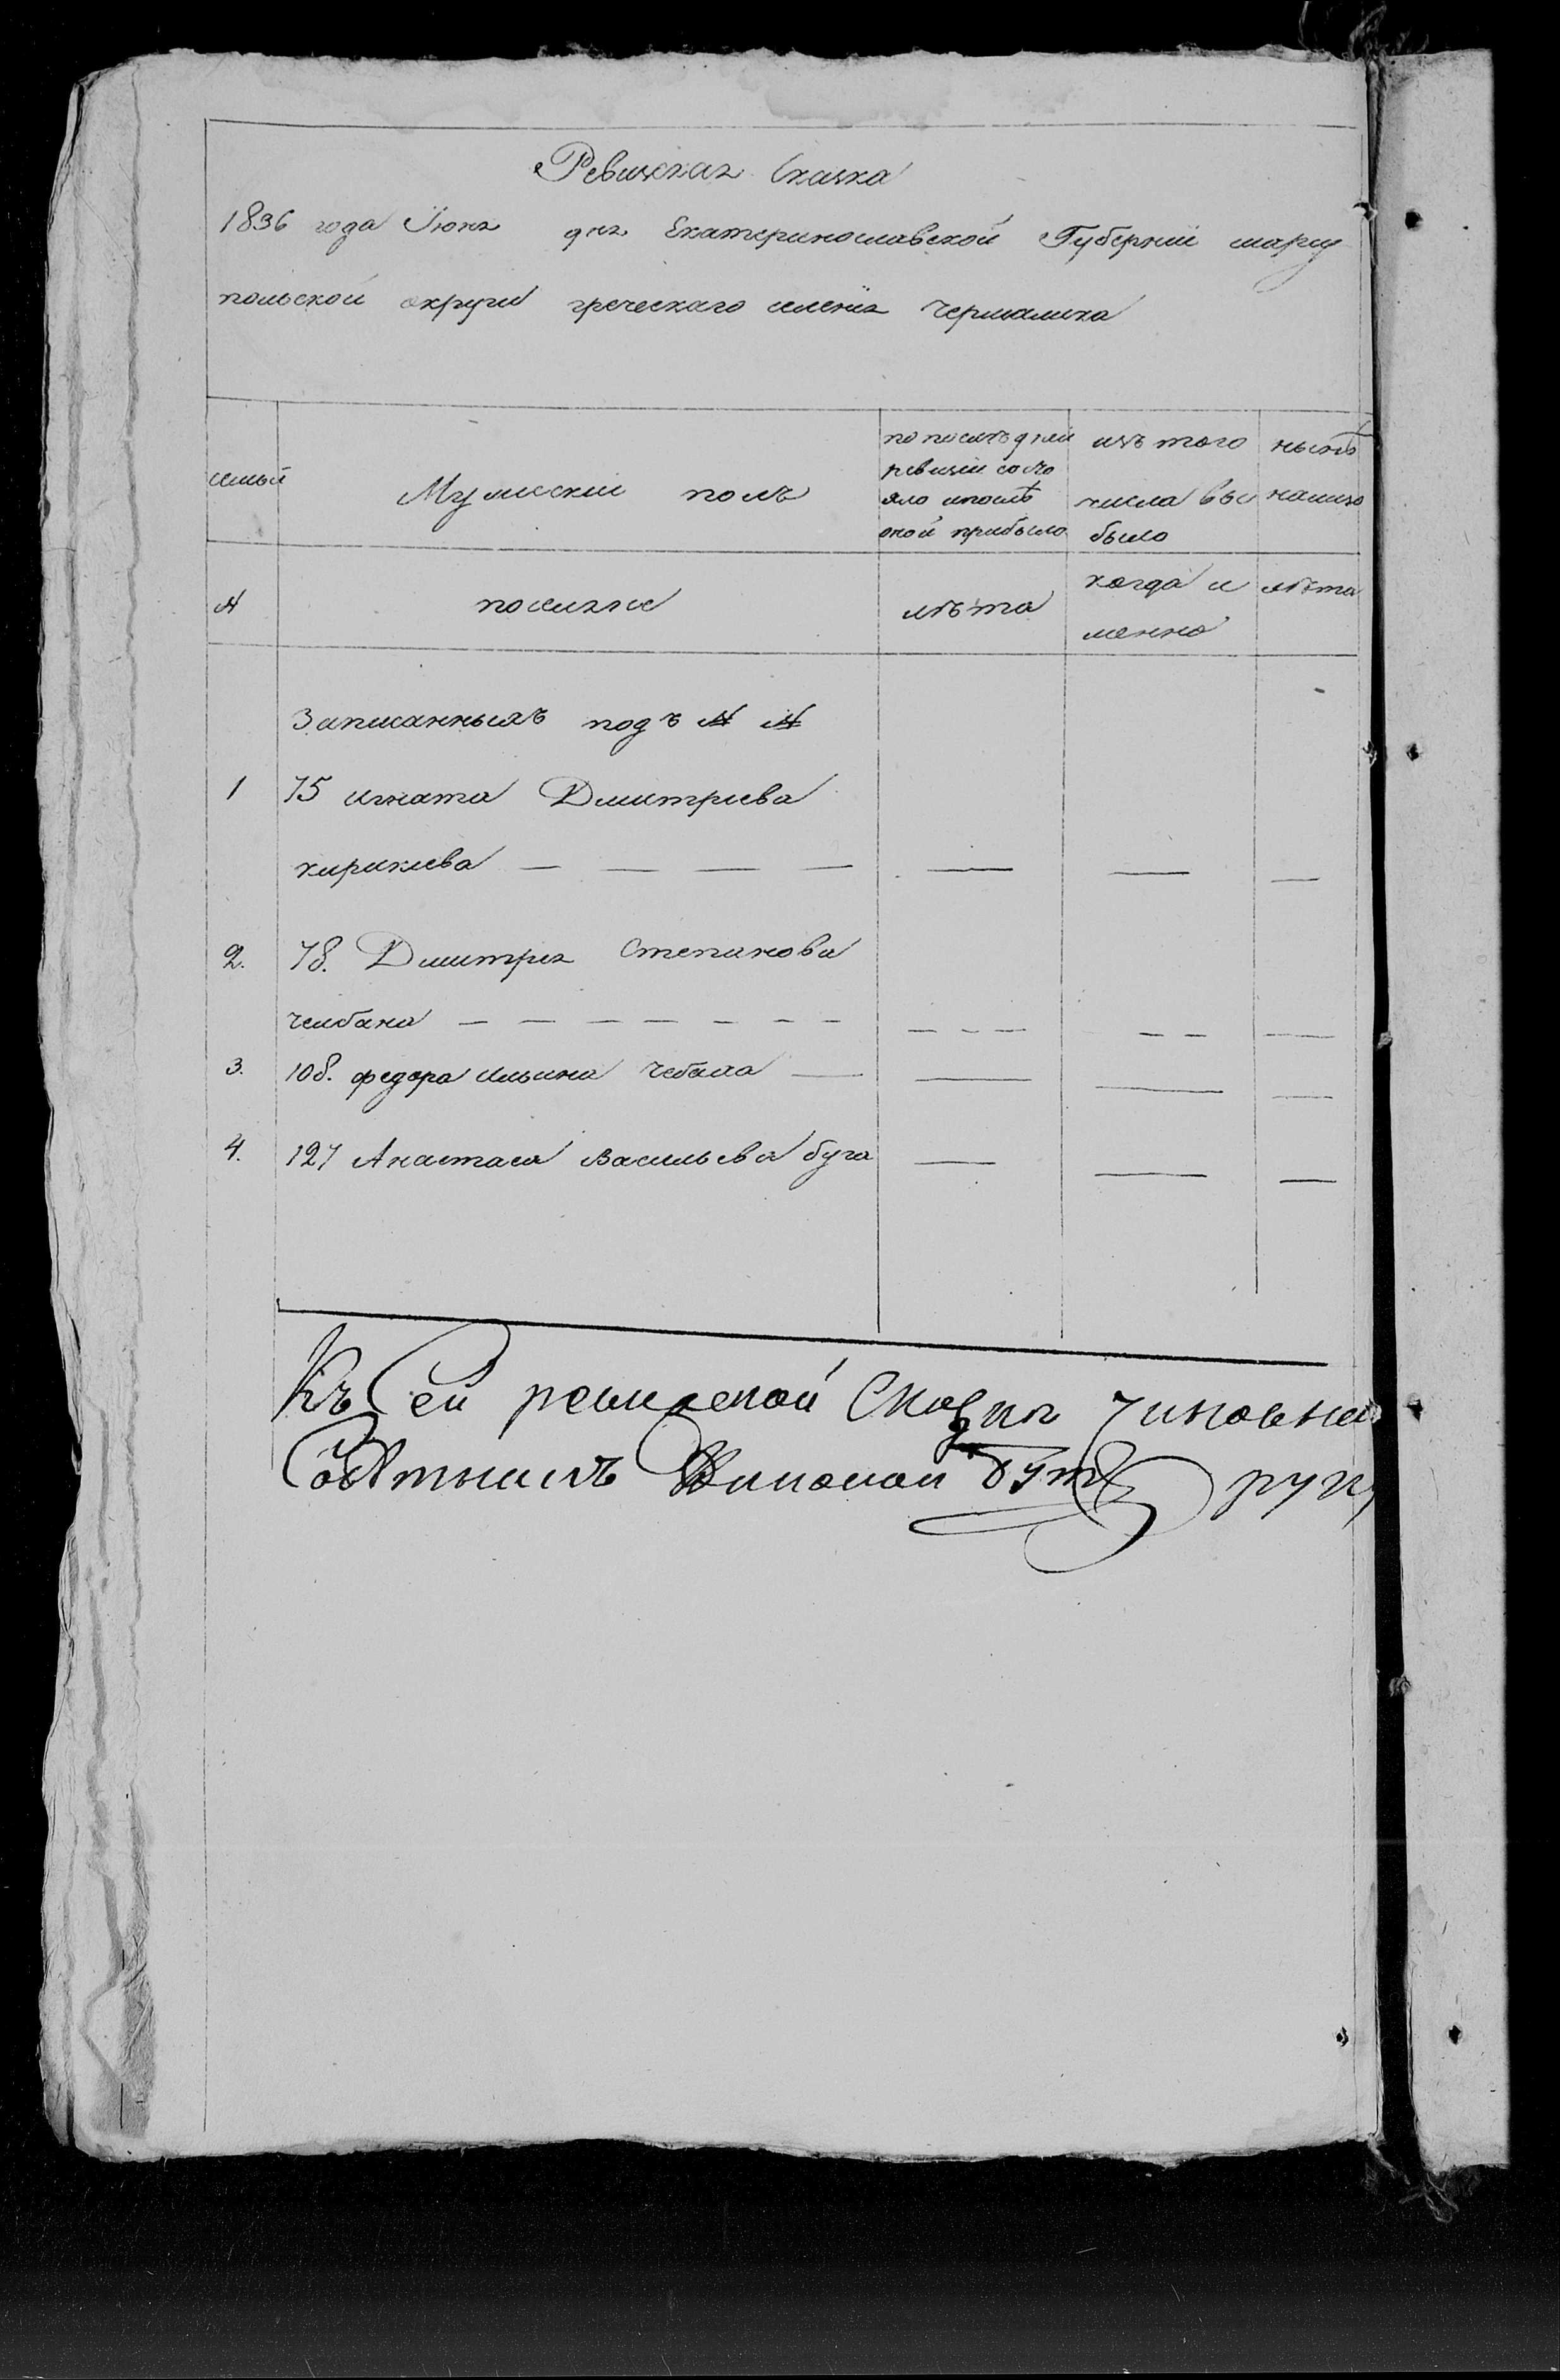 Ревизская Сказка
1836 года Іюня дня Екатеринославской Губерніи мариу
польской округи греческаго селенія Чермалика
семьи
Мужескій полъ
по последней
ревизіи состо
яло и после
оной прибыло
изъ того
числа вы
было
ныне
налицо
№
поимяне
лѣта
когда и
менно
лѣта
Записанныхъ подъ № №
1 75 игната Дмитріева
кирикиева
2. 78. Дмитрия Степанова
челбана
3. 108. федора ильина Чебаха
4. 127 Анастаса Васильева буга
Къ Сей ревизской Сказки
рук